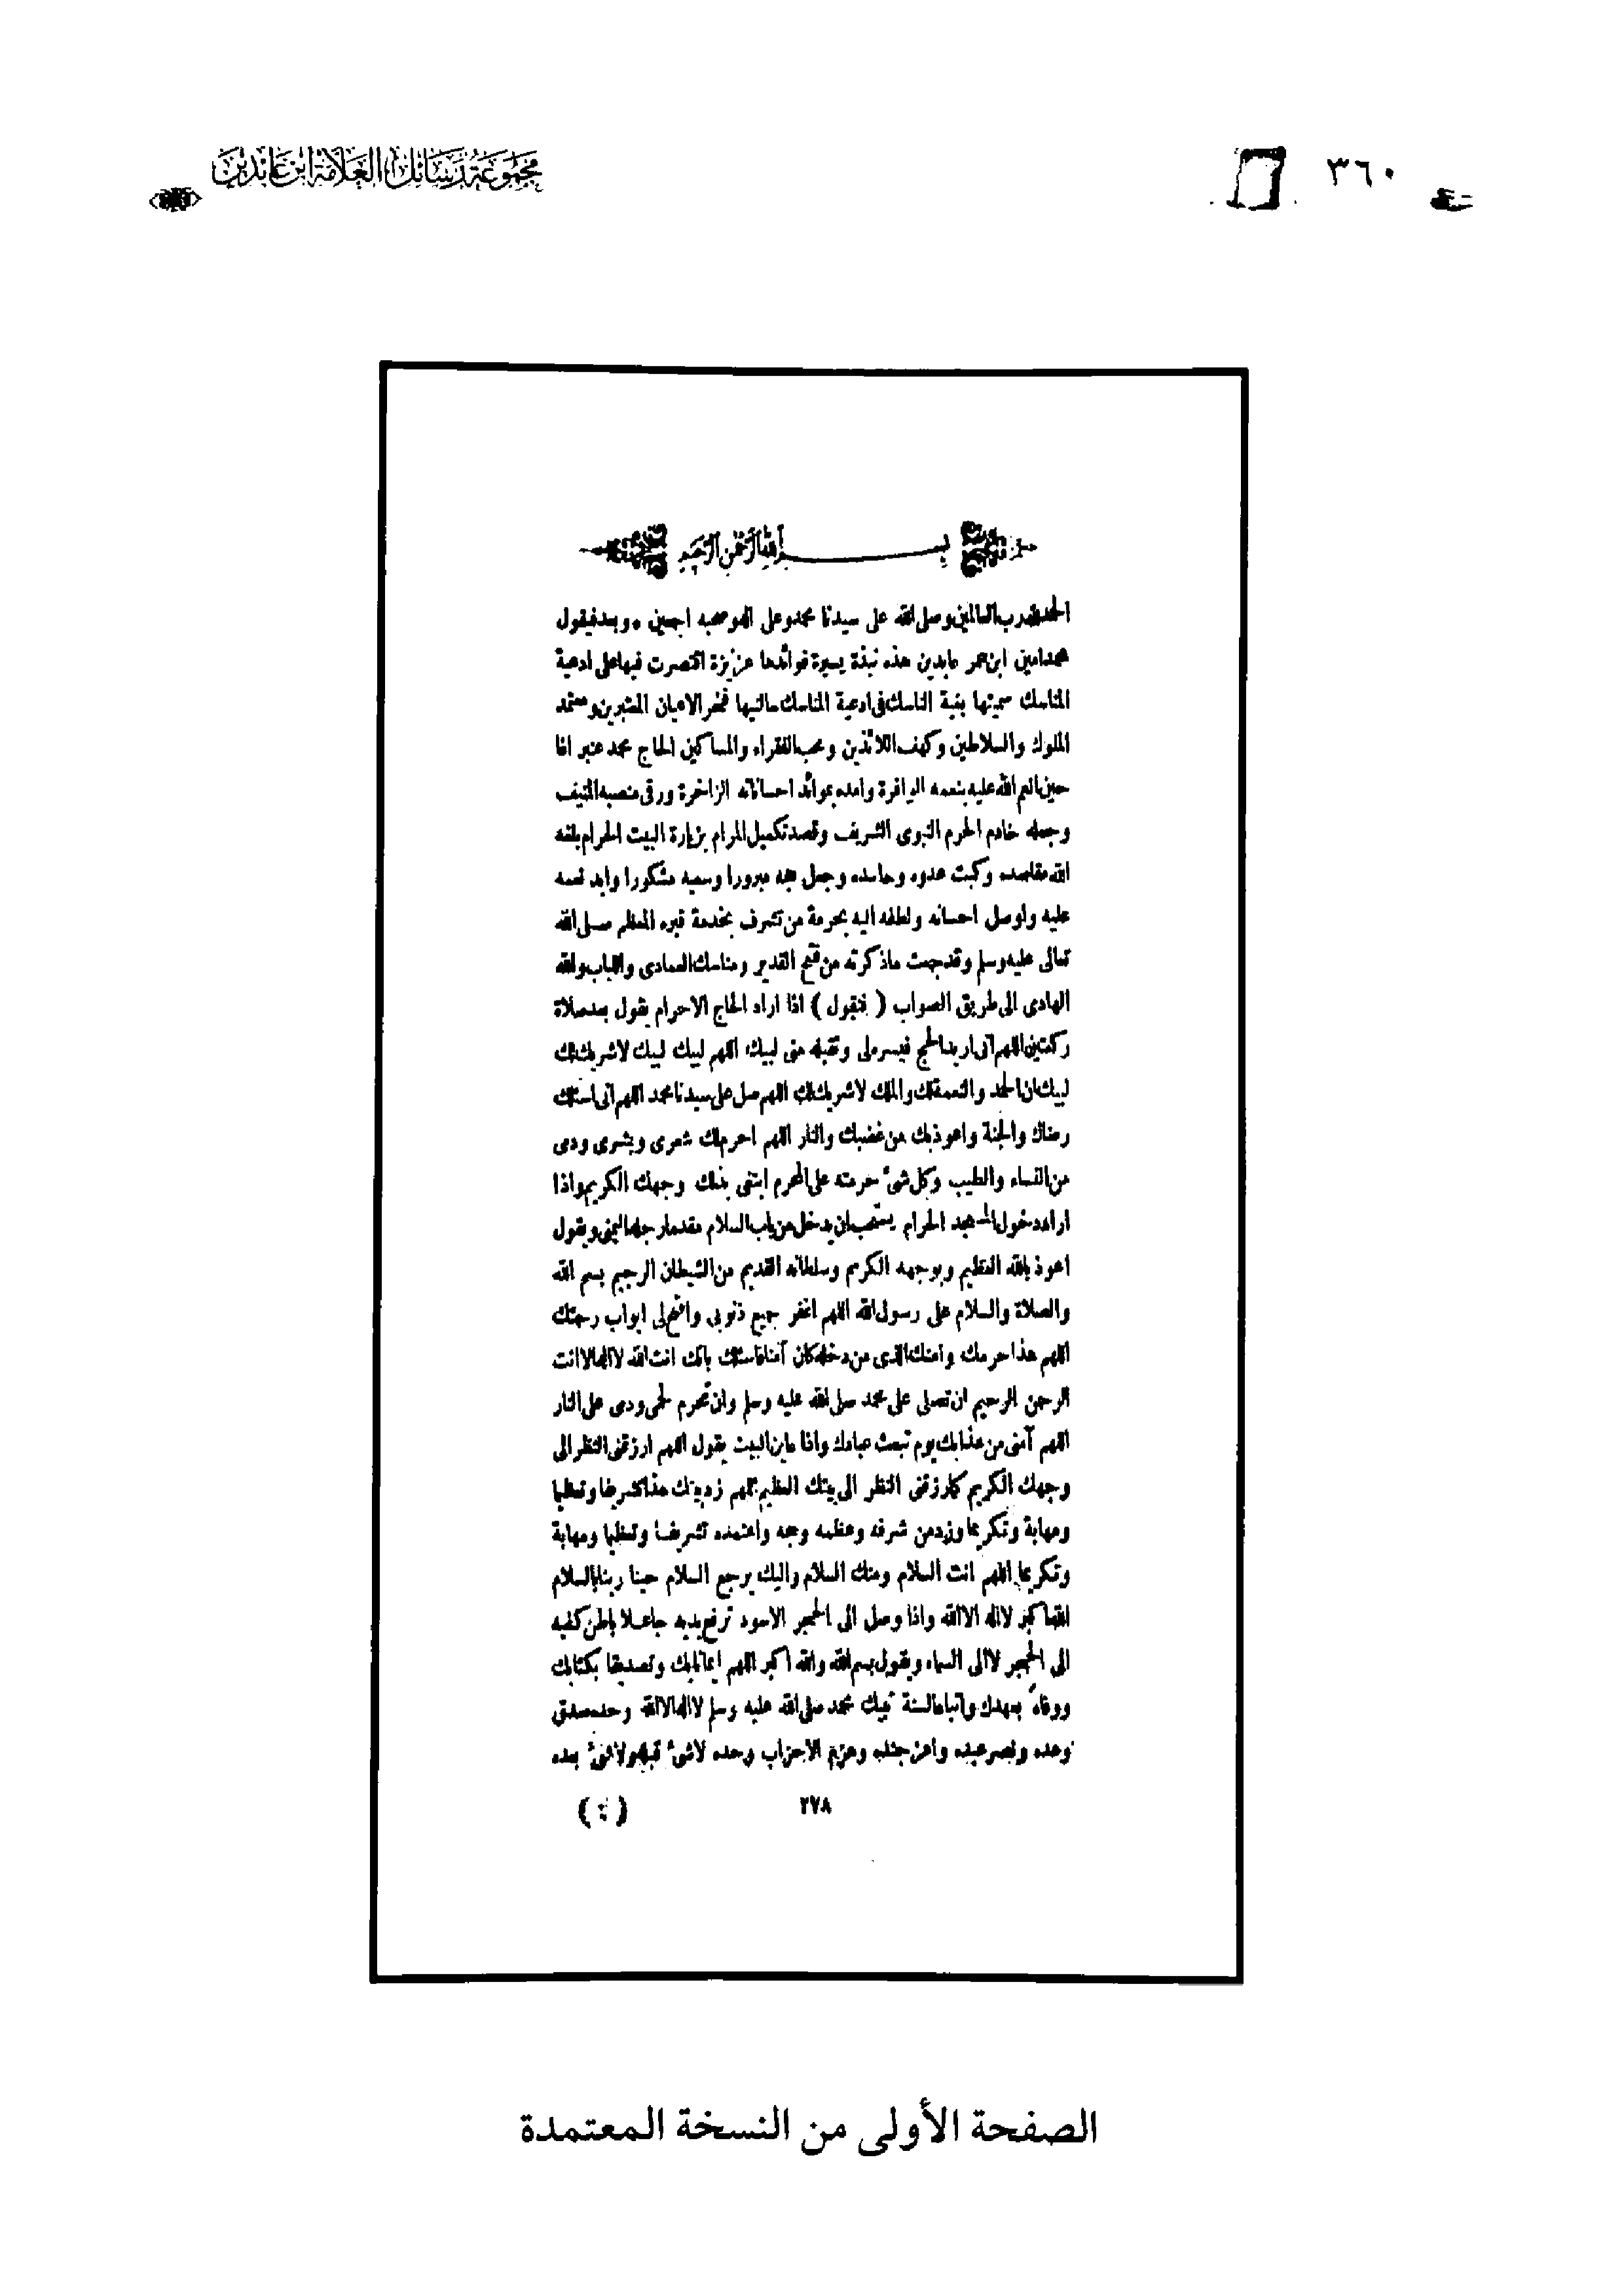 ٣٦٠
مجموعة رسائل العلامة ابن عابدين
بسم الله الرحمن الرحيم
الحمدلله رب العالمين وصلى الله على سيدنا محمد وعلى آله وصحبه اجمعين * وبعد فيقول
محمد امين ابن عمر عابدين هذه نبذة يسيرة فوائدها عزيزة اقتصرت فيها على ادعية
المناسك سميتها بغية الناسك فى ادعية المناسك سألنيها فخر الاعيان المعتبرين ومعتمد
الملوك والسلاطين وكهف اللائذين ومحب الفقراء والمساكين الحاج محمد عنبر اغا
حين انعم الله عليه بنعمه الوافرة وامده بموائد احساناته الزاخرة ورقى منصبه المنيف
وجعله خادم الحرم النبوى الشريف وقصد تكميل المرام بزيارة البيت الحرام بلغه
الله مقاصده وكبت عدوه وحاسده وجعل حجه مبرورا وسعيه مشكورا وابد نعمه
عليه واوصل احسانه ولطفه اليه بحرمة من تشرف بخدمة قبره المعظم صلى الله
تعالى عليه وسلم وقد جمعت ماذكرته من فتح القدير ومناسك العمادى واللباب والله
الهادى الى طريق الصواب ( فنقول ) اذا اراد الحاج الاحرام يقول بعد صلاة
ركعتين اللهم انى اريد الحج فيسره لى وتقبله منى لبيك اللهم لبيك لبيك لاشريك لك
لبيك ان الحمد والنعمة لك والملك لاشريك لك اللهم صل على سيدنا محمد اللهم انى اسئلك
رضاك والجنة واعوذ بك من غضبك والنار اللهم احرم لك شعرى وبشرى ودمى
من النساء والطيب وكل شئ حرمته على المحرم ابتغى بذلك وجهك الكريم واذا
اراد دخول المسجد الحرام يستحب ان يدخل من باب السلام مقدما رجله اليمنى ويقول
اعوذ بالله العظيم وبوجهه الكريم وسلطانه القديم من الشيطان الرجيم بسم الله
والصلاة والسلام على رسول الله اللهم اغفر جميع ذنوبى وافتح لى ابواب رحمتك
اللهم هذا حرمك وامنك الذى من دخله كان آمنا فاسئلك بانك انت الله لااله الا انت
الرحمن الرحيم ان تصلى على محمد صلى الله عليه وسلم وان تحرم لحمى ودمى على النار
اللهم آمنى من عذابك يوم تبعث عبادك واذا عاين البيت يقول اللهم ارزقنى النظر الى
وجهك الكريم كما رزقتنى النظر الى بيتك العظيم اللهم زد بيتك هذا تشريفا وتعظيما
ومهابة وتكريما وزد من شرفه وعظمه وحجه واعتمده تشريفا وتعظيما ومهابة
وتكريما اللهم انت السلام ومنك السلام واليك يرجع السلام حينا ربنا بالسلام
الله اكبر لااله الا الله واذا وصل الى الحجر الاسود ترفع يديه جاعلا باطن كفيه
الى الحجر لاالى السماء ويقول بسم الله والله اكبر اللهم ايمانا بك وتصديقا بكتابك
ووفاءً بعهدك واتباعا لسنة نبيك محمد صلى الله عليه وسلم لااله الا الله وحده صدق
وعده ونصر عبده واعز جنده وهزم الاحزاب وحده لاشئ قبله ولاشئ بعده
٢٧٨
الصفحة الأولى من النسخة المعتمدة